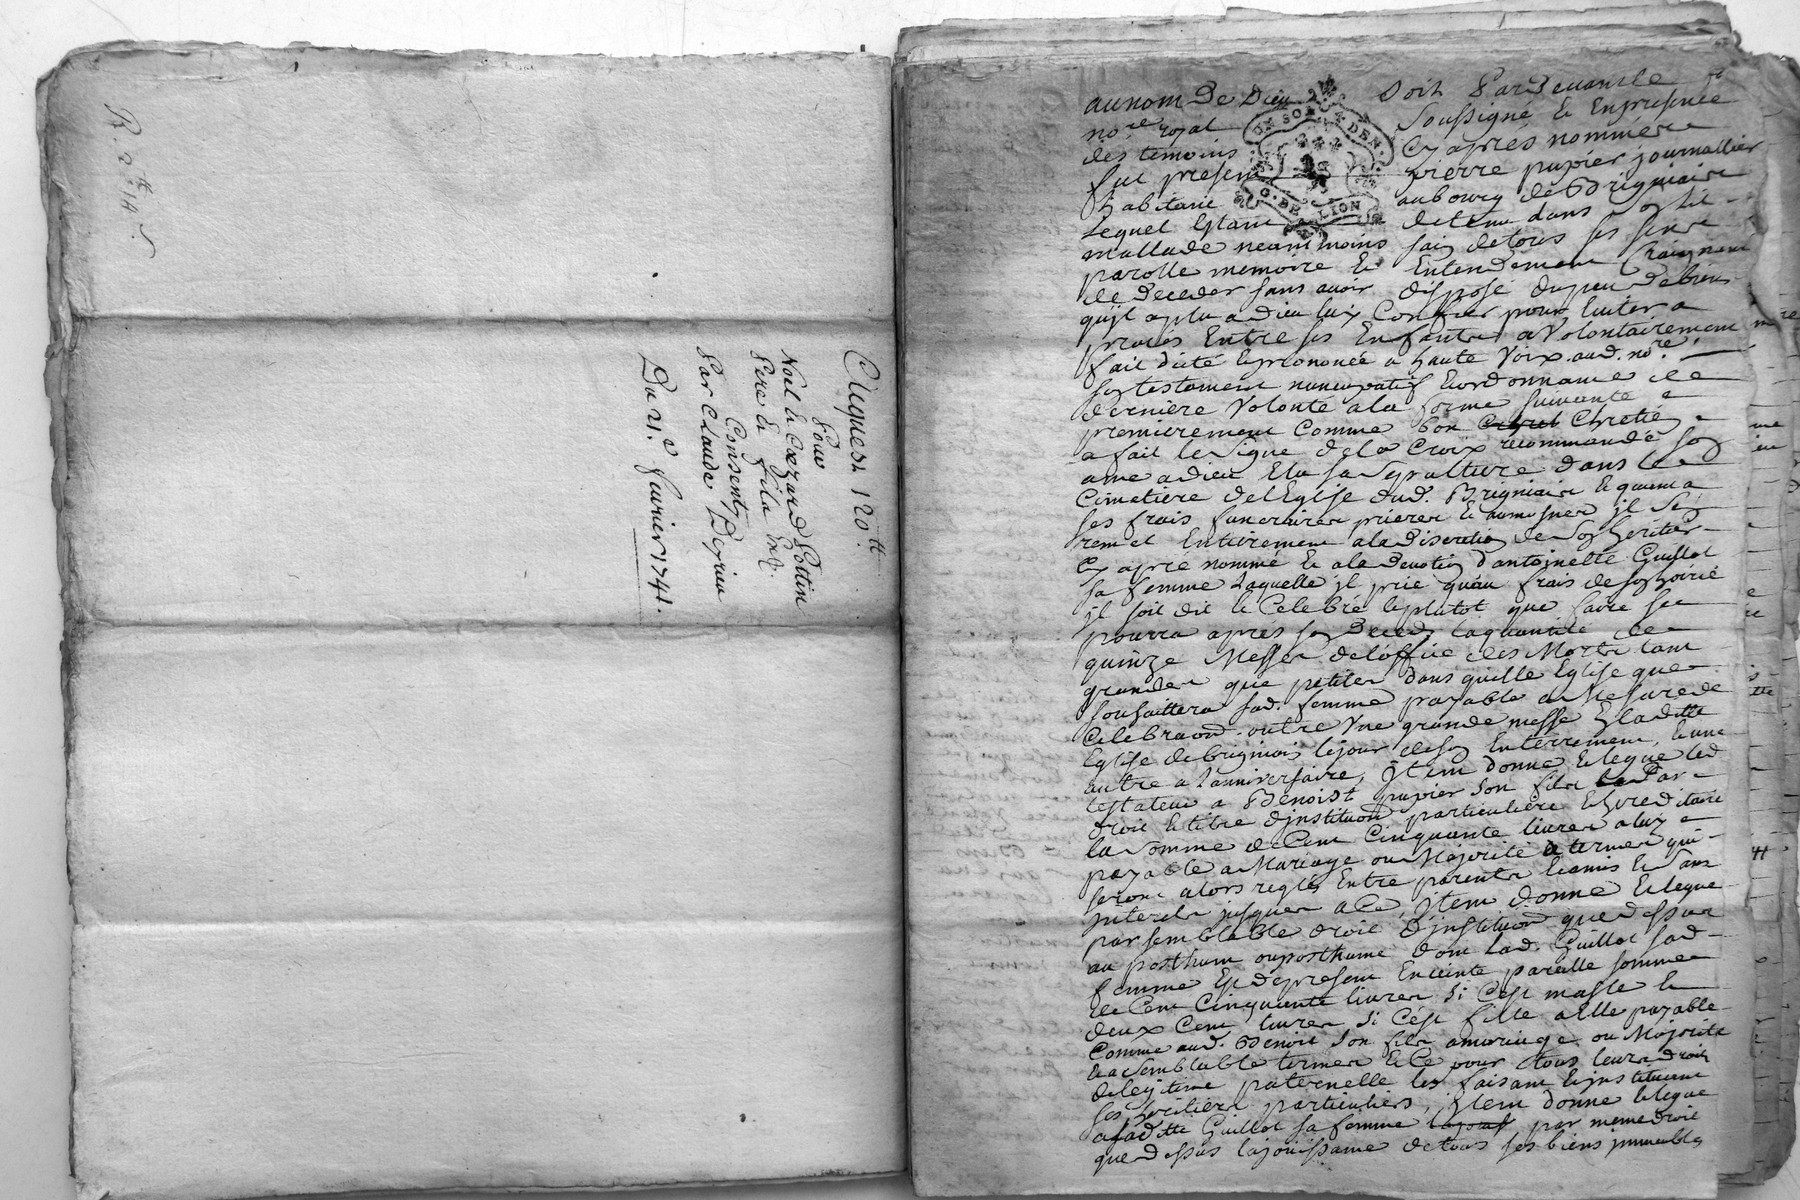 R. 2.tt 14 s
Cliquest 120tt
Pour
Noel & Cezard Pottin
Pere & fils Ent.
Consenty
Par Claude Deprieu
Du 21.e feuvrier 1741.
au nom De Dieu Soit Pardevant le
no.re royal Soussigné & En presence
des temoins Cy apres nommées
fut present pierre papier journallier
habitant au bourg de Brigniaise
Lequel Estant detenu dans son lit
mallade neantmoins sain de tous ses sens
parolle memoire & Entendement Craignant
de Deceder sans avoir disposé du peu de biens
qu'jl a plu a dieu luy Confier pour Euiter a
procés Entre ses Enfants a Volontairement
fait dicté & prononcé a haute Voix aud. no.re
son testament nuncupatif & ordonnance de
derniere Volonté a la forme suivante
premierement Comme bon Chretié
a fait le signe de la Croix recommandé son
ame a dieu Elu sa sepulture dans le
Cimetiere de l'Eglise dud. Brigniais & quant a
ses frais funeraires prieres & aumosnes jl s'en
remet Entierement a la discretion de son heritier
Cy apres nommé & a la devotion d'antoinette Guillot
sa femme Laquelle jl prie qu'au frais de son hoirié
jl soit dit & Celebré le plutot que faire se
pourra aprés son Decedz la quantité de
quinze Messes de l'office des Morts tant
grandes que petites dans quelle Eglise que
souhaittera sad. femme payable a Mesure de
Celebraon. outre Vne grande messe En laditte
Eglise de brigniais le jour de son Enterrement, & une
autre a l'anniversaire, jtem donne & legue led
testateur a Benoist papier son fils Par
droit & titre d'jnstituon particuliere & hereditaire
la somme de Cent Cinquante livres a luy
payable a Mariage ou Majorité a termes qui
seront alors reglés Entre parents & amis & sans
jnterets jusques a Ce, jtem donne & legue
par semblable droit d'jnstituon que dessus
au posthum ou posthume dont lad. Guillot sad
femme Est de present Enceinte pareille somme
de Cent Cinquante livres si C'est masle &
deux Cent livres si C'est fille a Elle payable
Comme aud. Benoit son fils a mariage ou Majorité
& a semblable termes & Ce pour tous leurs droits
de legitime paternelle les faisant & jnstituant
ses heritiers particuliers, jtem donne & legue
a laditte Guillot sa femme par meme droit
que dessus la jouissance de tous ses biens jmmeubles